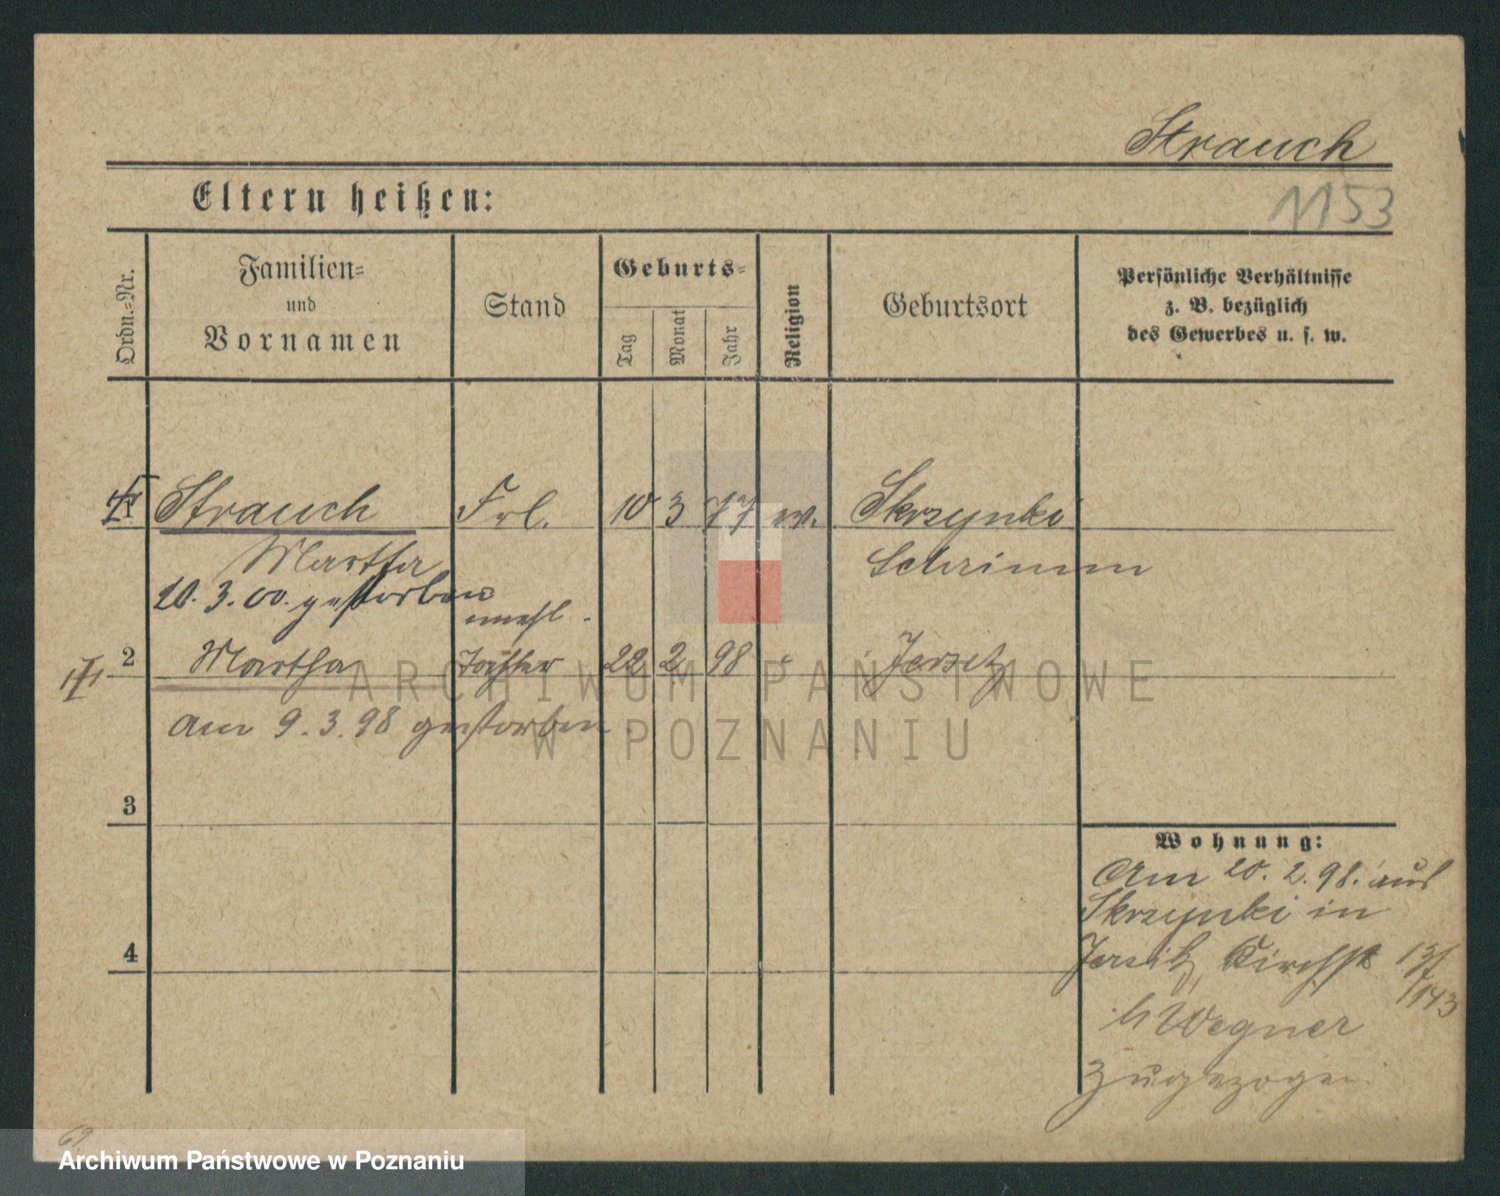 Strauch
1153
Eltern heißen:
Ordn.=Nr.
Familien=
und
Vornamen
Stand
Geburts=
Tag
Monat
Jahr
Religion
Geburtsort
Persönliche Verhältnisse
z. B. bezüglich
des Gewerbes u. s. w.
1 Strauch Frl. 10 3 77 ev. Skrzynki
Martha Schrimm
10. 3. 00. gestorben
unehl.
2 Martha Tochter 22 2 98 Jersitz
am 9. 3. 98 gestorben
3
4
Wohnung:
Am 20. 2. 98. aus
Skrzynki in
Jersitz, Kirchst
b Wegner
zugezogen
ARCHIWUM PAŃSTWOWE
W POZNANIU
Archiwum Państwowe w Poznaniu